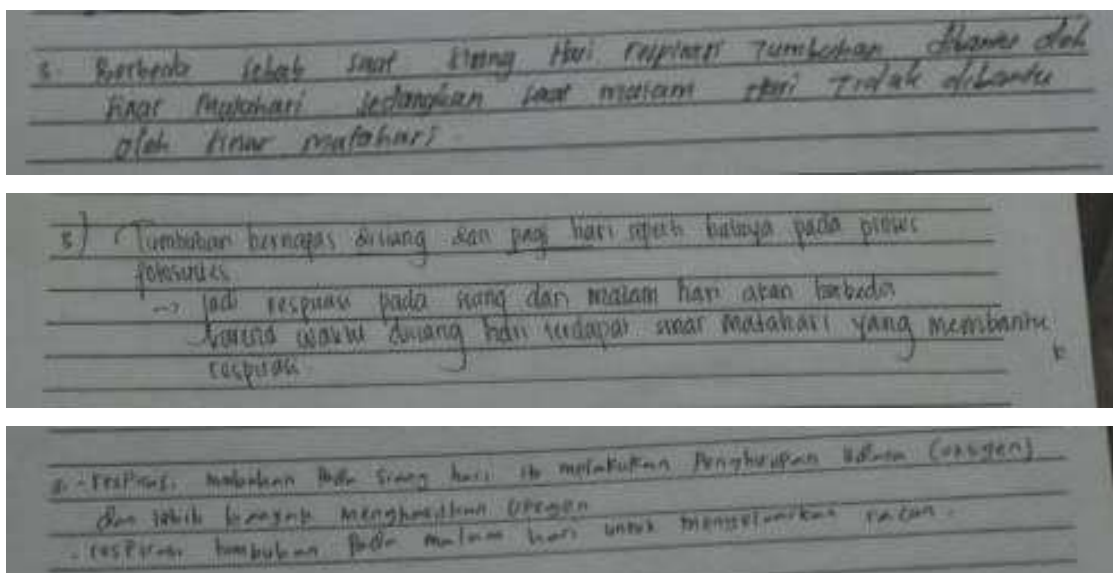 3. Berbeda sebab saat siang Hari respirasi Tumbuhan dibantu oleh
sinar Matahari sedangkan saat malam Hari Tidak dibantu
oleh sinar matahari.
3) Tumbuhan bernapas disiang dan pagi hari seperti pada proses
fotosintesis
→ jadi respirasi pada siang dan malam hari akan berbeda
karena waktu disiang hari terdapat sinar matahari yang membantu
respirasi
respirasi tumbuhan pada siang hari itu melakukan Penghirupan udara (oksigen)
dan lebih banyak menghasilkan oksigen
- respirasi tumbuhan pada malam hari untuk mengeluarkan racun.